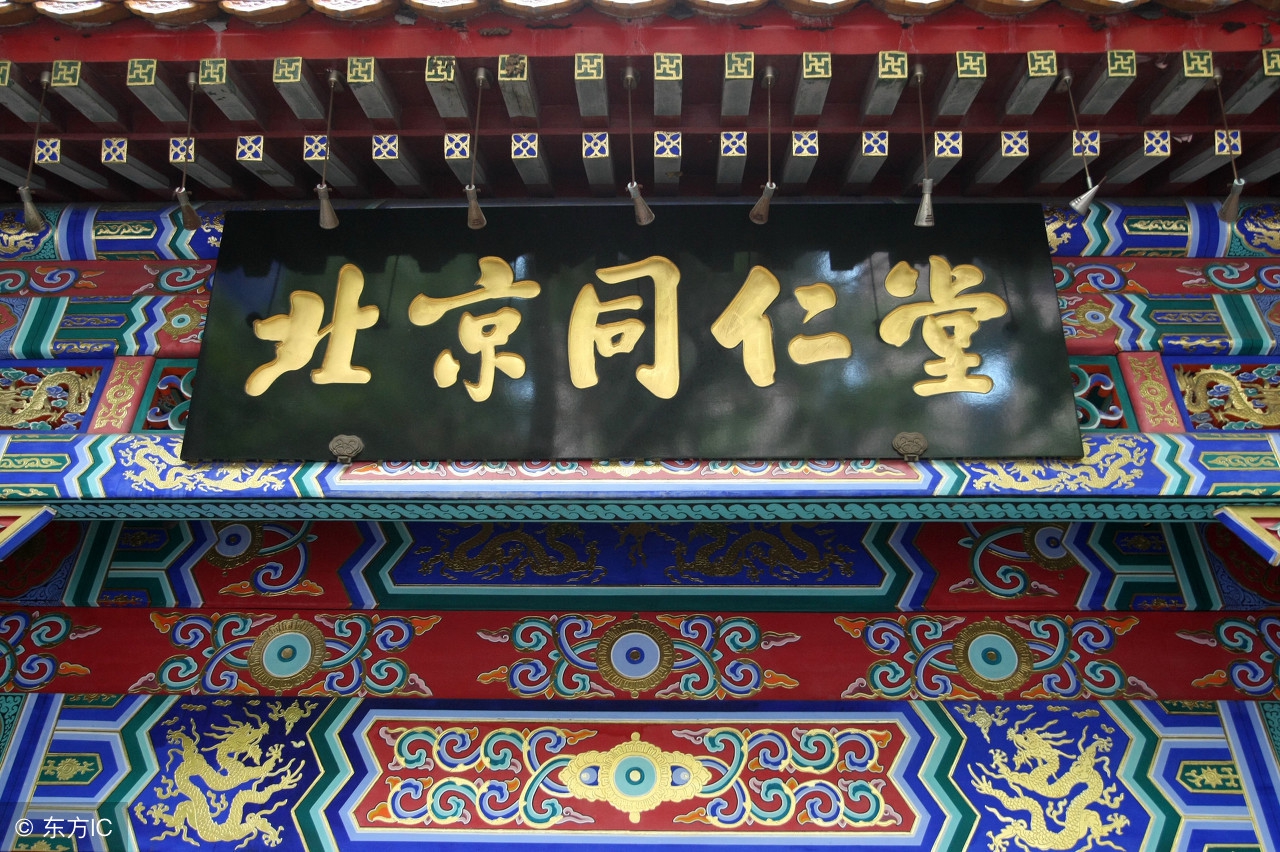 北京同仁堂
© 东方IC